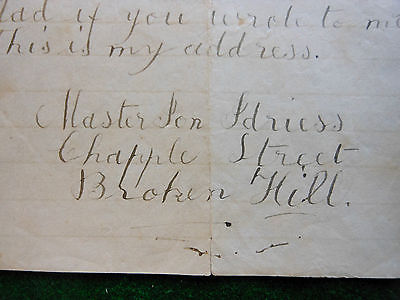 lad if you wrote to me
This is my address.
Master Ion Idriess
Chapple Street
Broken Hill.